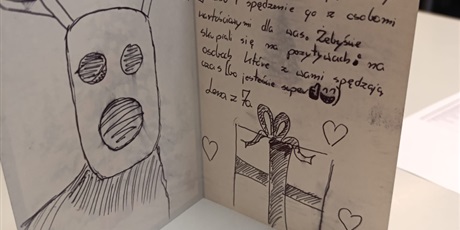 i spędzenie go z osobami
wartościowymi dla was. Żebyście
skupili się na pozytywach i na
osobach które z wami spędzają
czas (bo jesteście super
Lena z 7a